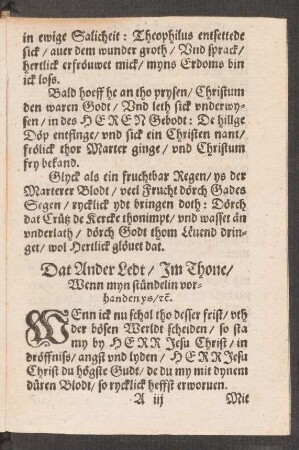 in ewige Salicheit: Theophilus entsettede
sick / auer dem wunder groth / Vnd sprack /
hertlick erfröuwet mick / myns Erdoms bin
ick loss.
Bald hoeff he an tho prysen / Christum
den waren Godt / Vnd leth sick vnderwy-
sen / in des HEREN Gebodt: De hillge
Döp entfinge / vnd sick ein Christen nant /
frölick thor Marter ginge / vnd Christum
fry bekand.
Glyck als ein fruchtbar Regen / ys der
Marterer Blodt / veel Frucht dörch Gades
Segen / rycklick ydt bringen doth: Dörch
dat Crütz de Kercke thonimpt / vnd wasset än
vnderlath / dörch Godt thom Leuend drin-
get / wol Hertlick glöuet dat.
Dat Ander Ledt / Im Thone /
Wenn myn stündelin vor-
handen ys / ꝛc.
WEnn ick nu schal tho desser frist / vth
der bösen Werldt scheiden / so sta
my by HERR Jesu Christ / in
dröffnüss / angst vnd lyden / HERR Jesu
Christ du högste Gudt / de du my mit dynem
düren Blodt / so rycklick heffst erworuen.
A iij Mit